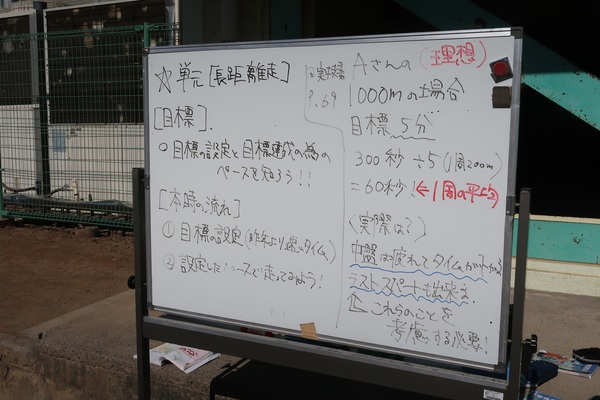 ☆単元[長距離走]
[目標].
○目標の設定と目標達成の為の
ペースを知ろう!!
[本時の流れ]
①目標の設定(昨年より速いタイム)
②設定したペースで走ってみよう!
P.69
Aさんの(理想)
1000mの場合
目標 5分
300秒÷5(1周200m)
=60秒!←1周の平均
〈実際は?〉
中盤は疲れてタイムが下がる
ラストスパートも出来る
これらのことを
考慮する必要!